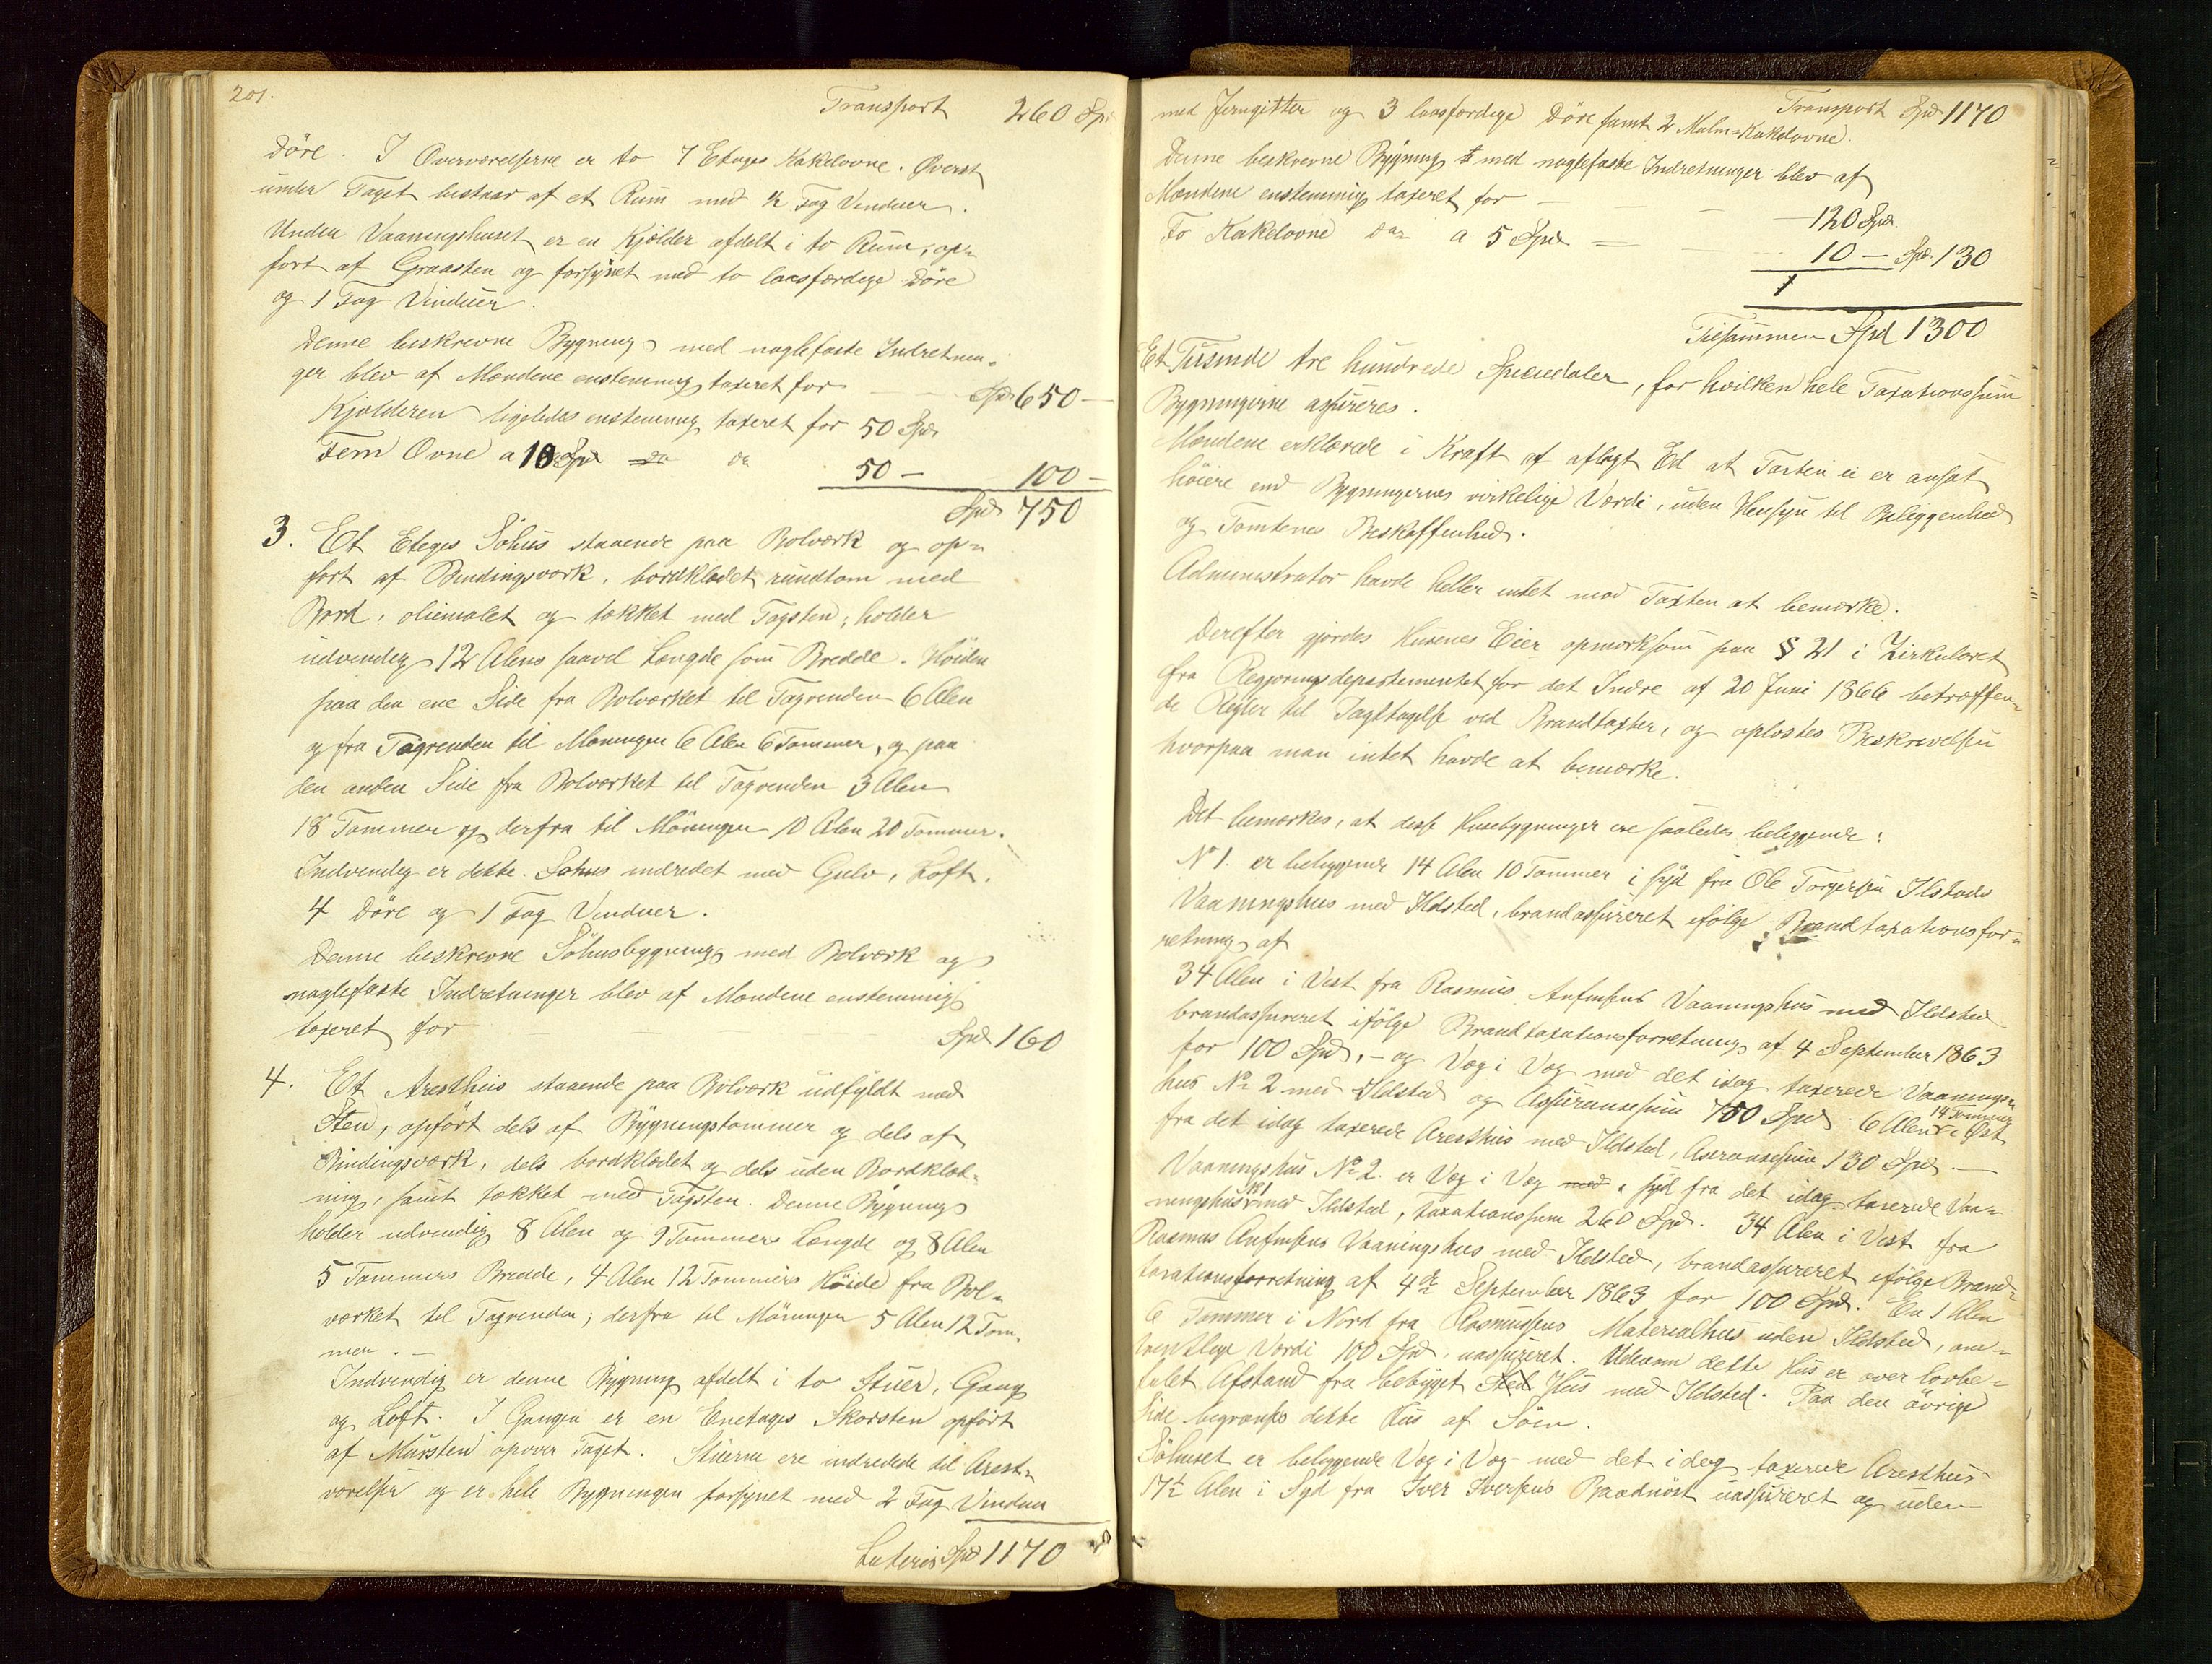 201.
Transport 260 Spd
Döre. I Overværelserne er to 7 Etages Kakelovne. Øverst
under Taget bestaar af et Rum med ½ Fag Vinduer.
Under Vaaningshuset er en Kjelder afdelt i to Rum, op-
fört af Graasten og forsynet med to laasfærdige Döre
og 1 Fag Vinduer.
Denne beskrevne Bygning med naglefaste Indretnin-
ger blev af Mændene enstemmig taxeret for Spd 650 —
Kjelderen ligeledes enstemmig taxeret for 50 Spd
Fem Ovne a 10 Spd do do 50 — 100 —
Spd 750
3. Et Etages Söhus staaende paa Bolværk og op-
fört af Bindingsværk, bordklædet rundtom med
Bord, oliemalet og tækket med Tagsten; holder
udvendig 12 Alens saavel Længde som Bredde. Höiden
paa den ene Side fra Bolværket til Tagrenden 6 Alen
og fra Tagrenden til Möningen 6 Alen 6 Tommer, og paa
den anden Side fra Bolværket til Tagrenden 3 Alen
18 Tommer og derfra til Möningen 10 Alen 20 Tommer.
Indvendig er dette Söhus indredet med Gulv, Loft,
4 Döre og 1 Fag Vinduer.
Denne beskrevne Söhusbygning med Bolværk og
naglefaste Indretninger blev af Mændene enstemmig
taxeret for Spd 160
4. Et Aresthus staaende paa Bolværk udfyldt med
Sten, opfört dels af Bygningstømmer og dels af
Bindingsværk, dels bordklædet og dels uden Bordklæd-
ning, samt tækket med Tagsten. Denne Bygning
holder udvendig 8 Alen og 9 Tommers Længde og 8 Alen
5 Tommers Bredde, 4 Alen 12 Tommers Höide fra Bol-
værket til Tagrenden; derfra til Möningen 5 Alen 12 Tom-
mer. —
Indvendig er denne Bygning afdelt i to Stuer, Gang
og Loft. I Gangen er en Enetages Skorsten opfört
af Mursten opover Taget. Stuerne ere indredede til Arest-
værelser og er hele Bygningen forsynet med 2 Fag Vinduer
Lateris Spd 1170
Transport Spd 1170
med Jerngitter og 3 laasfærdige Döre samt 2 Malm-Kakelovne.
Denne beskrevne Bygning med naglefaste Indretninger blev af
Mændene enstemmig taxeret for — 120 Spd.
To Kakelovne do a 5 Spd — 10 — Spd 130
Tilsammen Spd 1300
Et Tusinde tre hundrede Speciedaler, for hvilken hele Taxationssum
Bygningerne assureres.
Mændene erklærede i Kraft af aflagt Ed at Taxten ei er ansat
höiere end Bygningernes virkelige Værdi, uden Hensyn til Beliggenhed
og Tomtenes Beskaffenhed.
Administrator havde heller intet mod Taxten at bemærke.
Derefter gjordes Husenes Eier opmærksom paa § 21 i Zirkulæret
fra Regjeringsdepartementet for det Indre af 20 Juni 1866 betræffen-
de Regler til Iagttagelse ved Brandtaxter, og oplæstes Beskrivelsen
hvorpaa man intet havde at bemærke.
Det bemærkes, at disse Husebygninger ere saaledes beliggende:
No 1. er beliggende 14 Alen 10 Tommer i Syd fra Ole Torgersen Ilstads
Vaaningshus med Ildsted, brandassureret ifölge Brandtaxationsfor-
retning af
34 Alen i Vest fra Rasmus Anfinsens Vaaningshus med Ildsted
brandassureret ifölge Brandtaxationsforretning af 4 September 1863
for 100 Spd, — og Væg i Væg med det idag taxerede Vaanings-
hus No 2 med Ildsted og Assurancesum 750 Spd. 6 Alen 14 Tommer i Öst
fra det idag taxerede Aresthus med Ildsted, Assurancesum 130 Spd. —
Vaaningshus No 2. er Væg i Væg med i Syd fra det idag taxerede Vaa-
ningshus No 1 med Ildsted, Taxationssum 260 Spd. 34 Alen i Vest fra
Rasmus Anfinsens Vaaningshus med Ildsted, brandassureret ifölge Brand-
taxationsforretning af 4de September 1863 for 100 Spd. En 1 Alen
6 Tommer i Nord fra Rasmussens Materialhus uden Ildsted, om-
trentlige Værdi 100 Spd, uassureret. Udenom dette Hus er over lovbe-
falet Afstand fra bebygget Sted Hus med Ildsted. Paa den övrige
Side begrænses dette Hus af Söen.
Söhuset er beliggende Væg i Væg med det idag taxerede Aresthus
17½ Alen i Syd fra Iver Iversens Baadnöst uassureret og uden